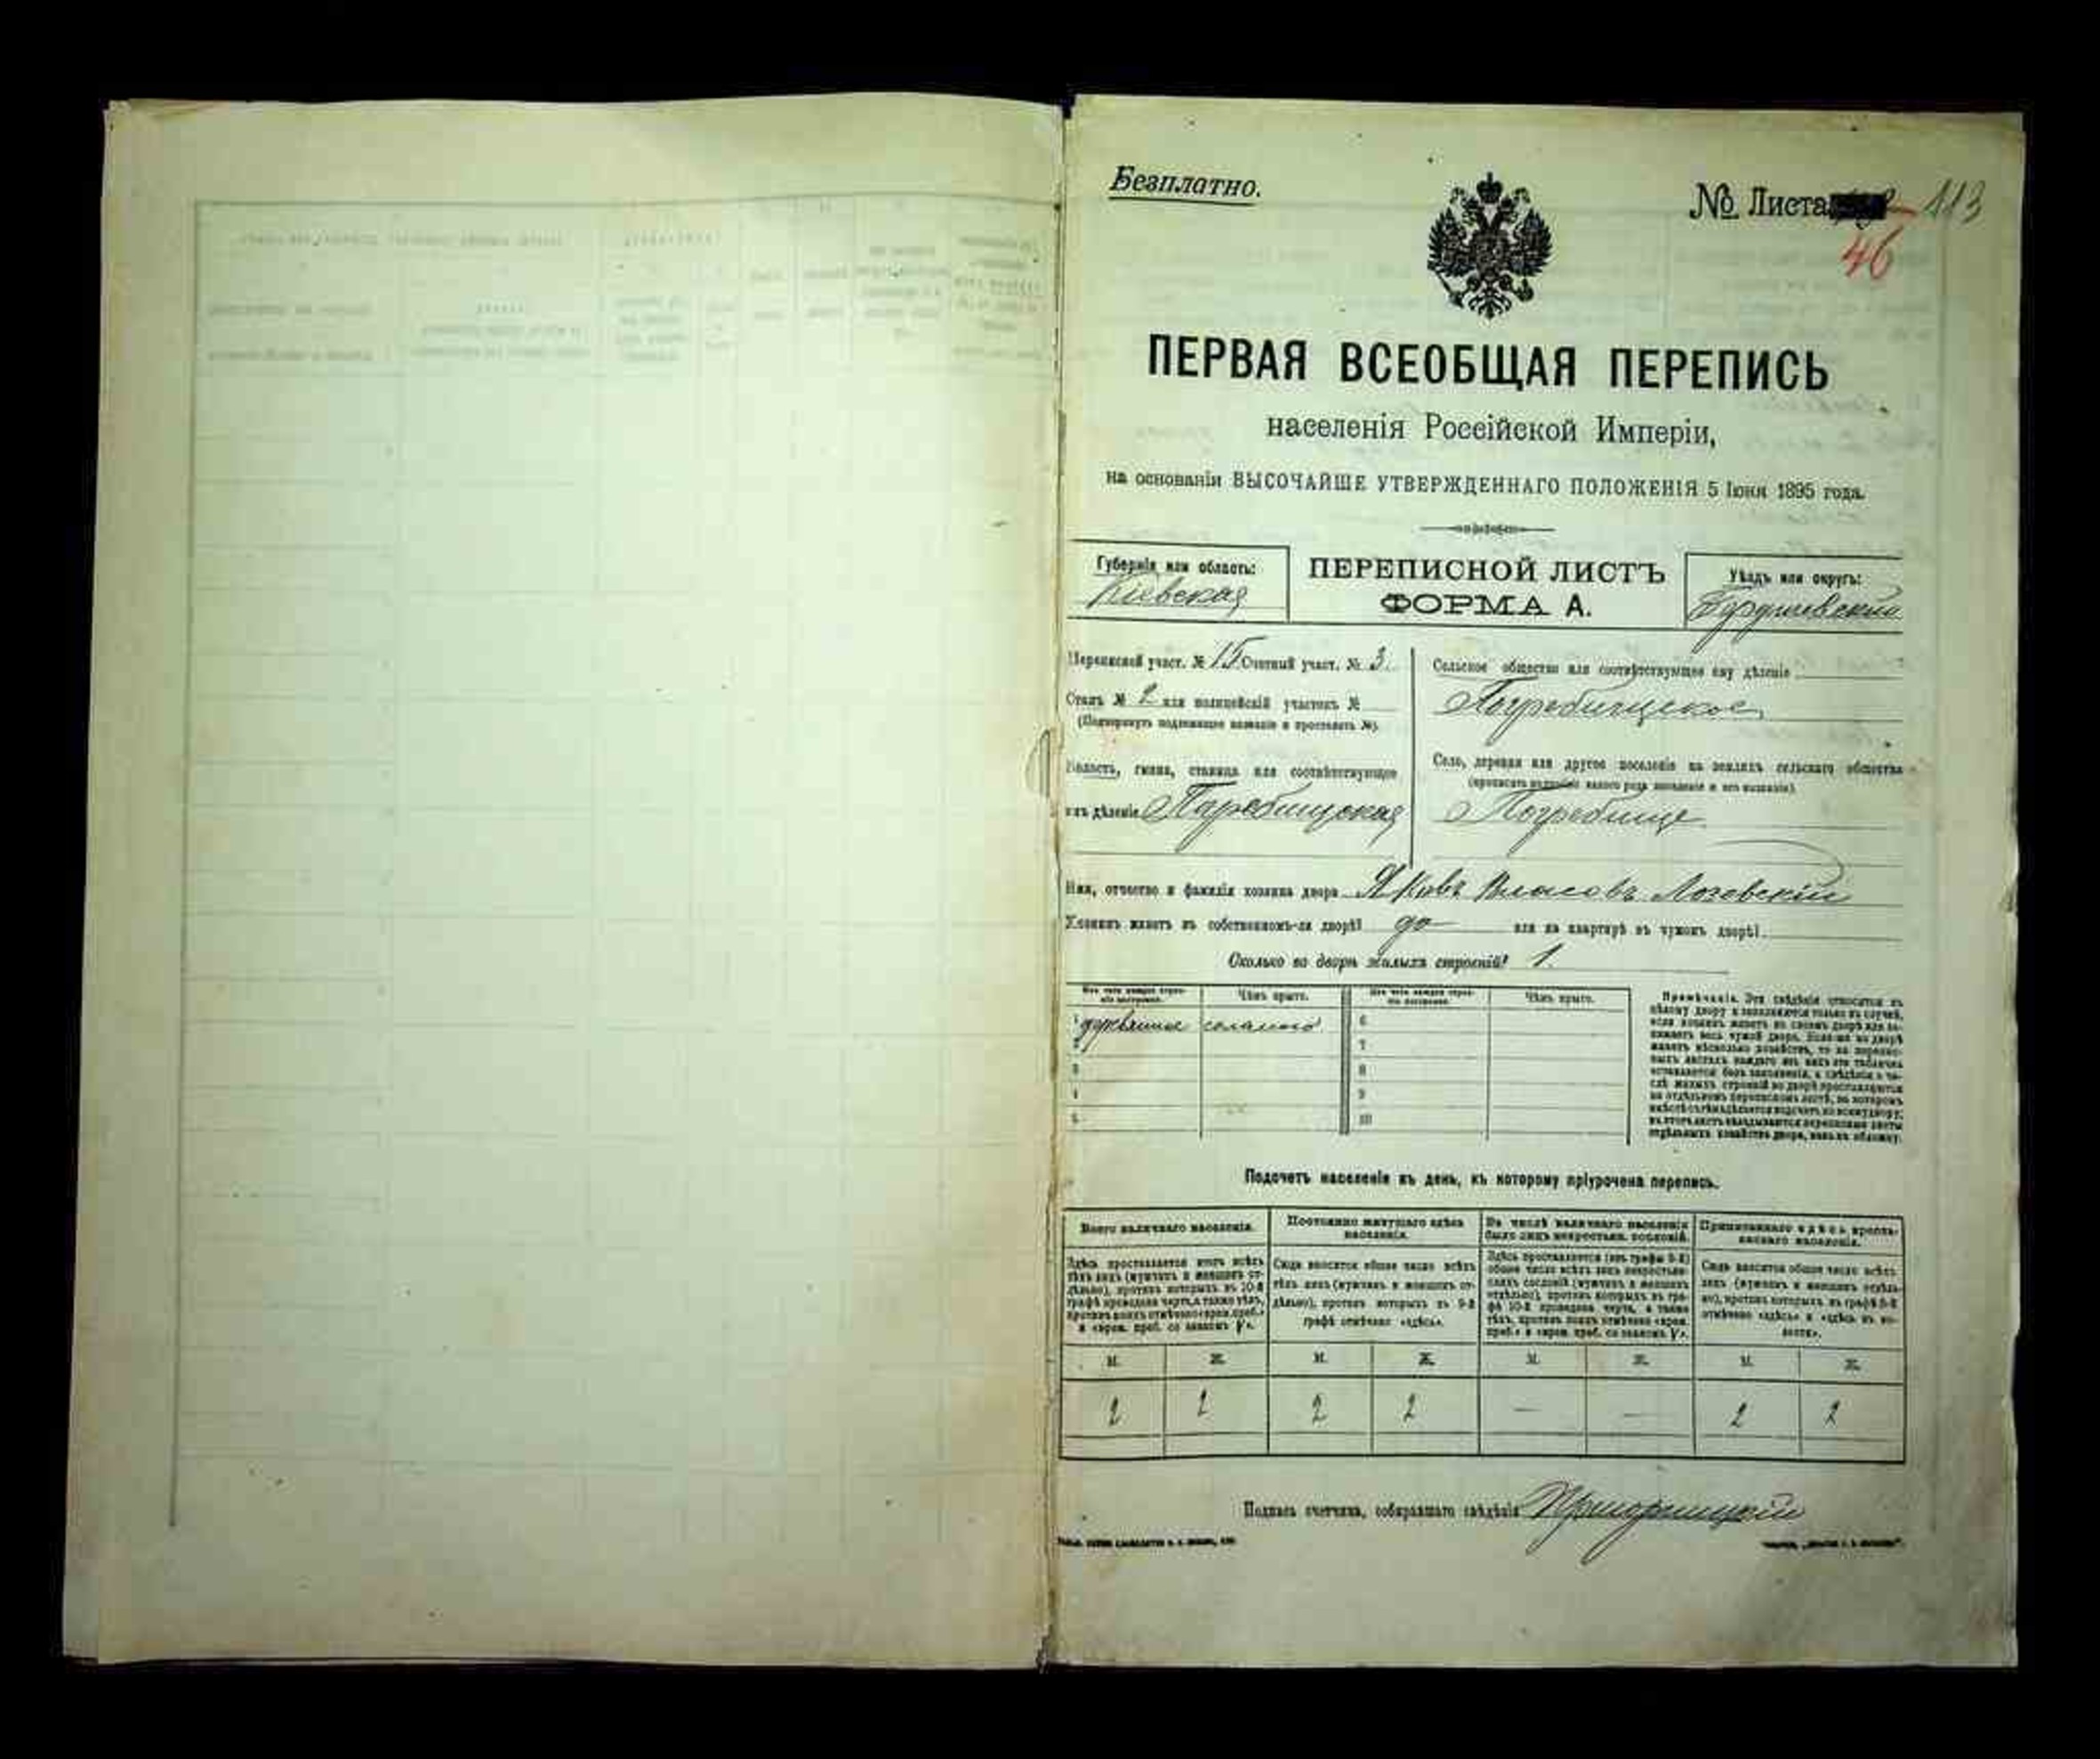 Безплатно.
№ Листа 113
46
ПЕРВАЯ ВСЕОБЩАЯ ПЕРЕПИСЬ
населенія Россійской Имперіи,
на основаніи ВЫСОЧАЙШЕ УТВЕРЖДЕННАГО ПОЛОЖЕНІЯ 5 Іюня 1895 года.
Губернія или область:
Кіевская
ПЕРЕПИСНОЙ ЛИСТЪ
ФОРМА А.
Уѣздъ или округъ:
Бердичевскій
Переписной участ. № 15 Счетный участ. № 3.
Станъ № 2 или полицейскій участокъ №
(Подчеркнуть подлежащее названіе и проставить №).
Волость, гмина, станица или соотвѣтствующее
имъ дѣленіе Погребищская
Сельское общество или соотвѣтствующее ему дѣленіе
Погребищское
Село, деревня или другое поселеніе на земляхъ сельскаго общества
(прописать подробно какого рода поселеніе и его названіе).
Погребище
Имя, отчество и фамилія хозяина двора Яковъ Власовъ Лозовскій
Хозяинъ живетъ въ собственномъ-ли дворѣ? да или на квартирѣ въ чужомъ дворѣ?
Сколько во дворѣ жилыхъ строеній? 1.
Изъ чего каждое строеніе построено. Чѣмъ крыто. Изъ чего каждое строеніе построено. Чѣмъ крыто.
1 деревяное соломою 6
2 7
3 8
4 9
5 10
Примѣчаніе. Эти свѣдѣнія относятся къ
цѣлому двору и заполняются только въ случаѣ,
если хозяинъ живетъ въ своемъ дворѣ или за-
нимаетъ весь чужой дворъ. Если-же во дворѣ
живетъ нѣсколько хозяйствъ, то на перепис-
ныхъ листахъ каждаго изъ нихъ эта табличка
оставляется безъ заполненія, а свѣдѣнія о чи-
слѣ жилыхъ строеній во дворѣ проставляются
на отдѣльномъ переписномъ листѣ, на которомъ
вмѣстѣ съ тѣмъ дѣлается подсчетъ по всему двору;
въ этотъ листъ вкладываются переписные листы
отдѣльныхъ хозяйствъ двора, какъ въ обложку.
Подсчетъ населенія въ день, къ которому пріурочена перепись.
Всего наличнаго населенія.
Здѣсь проставляется итогъ всѣхъ
тѣхъ лицъ (мужчинъ и женщинъ от-
дѣльно), противъ которыхъ въ 10-й
графѣ проведена черта, а также тѣхъ,
противъ коихъ отмѣчено «врем. преб.»
и «врем. преб. со знакомъ V».
Постоянно живущаго здѣсь
населенія.
Сюда вносится общее число всѣхъ
тѣхъ лицъ (мужчинъ и женщинъ от-
дѣльно), противъ которыхъ въ 9-й
графѣ отмѣчено «здѣсь».
Въ числѣ наличнаго населенія
было лицъ некрестьян. сословій.
Здѣсь проставляется (изъ графы 5-й)
общее число всѣхъ лицъ некрестьян-
скихъ сословій (мужчинъ и женщинъ
отдѣльно), противъ которыхъ въ гра-
фѣ 10-й проведена черта, а также
тѣхъ, противъ коихъ отмѣчено «врем.
преб.» и «врем. преб. со знакомъ V».
Приписаннаго здѣсь кресть-
янскаго населенія.
Сюда вносится общее число всѣхъ
лицъ (мужчинъ и женщинъ отдѣль-
но), противъ которыхъ въ графѣ 8-й
отмѣчено «здѣсь» и «здѣсь въ во-
лости».
М. Ж. М. Ж. М. Ж. М. Ж.
2 2 2 2 — — 2 2
Подпись счетчика, собиравшаго свѣдѣнія